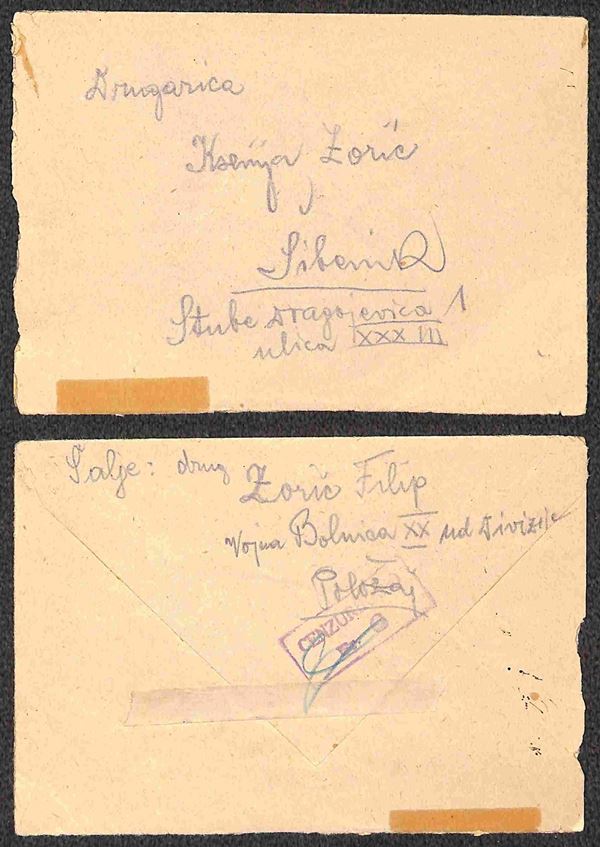 Drugarica
Ksenija Zorić
Šibenik
Stube Dragojevića 1
ulica XXX III
Šalje: drug
Zorić Filip
Vojna Bolnica XX ud Divizije
Položaj
CENZUR
Br.